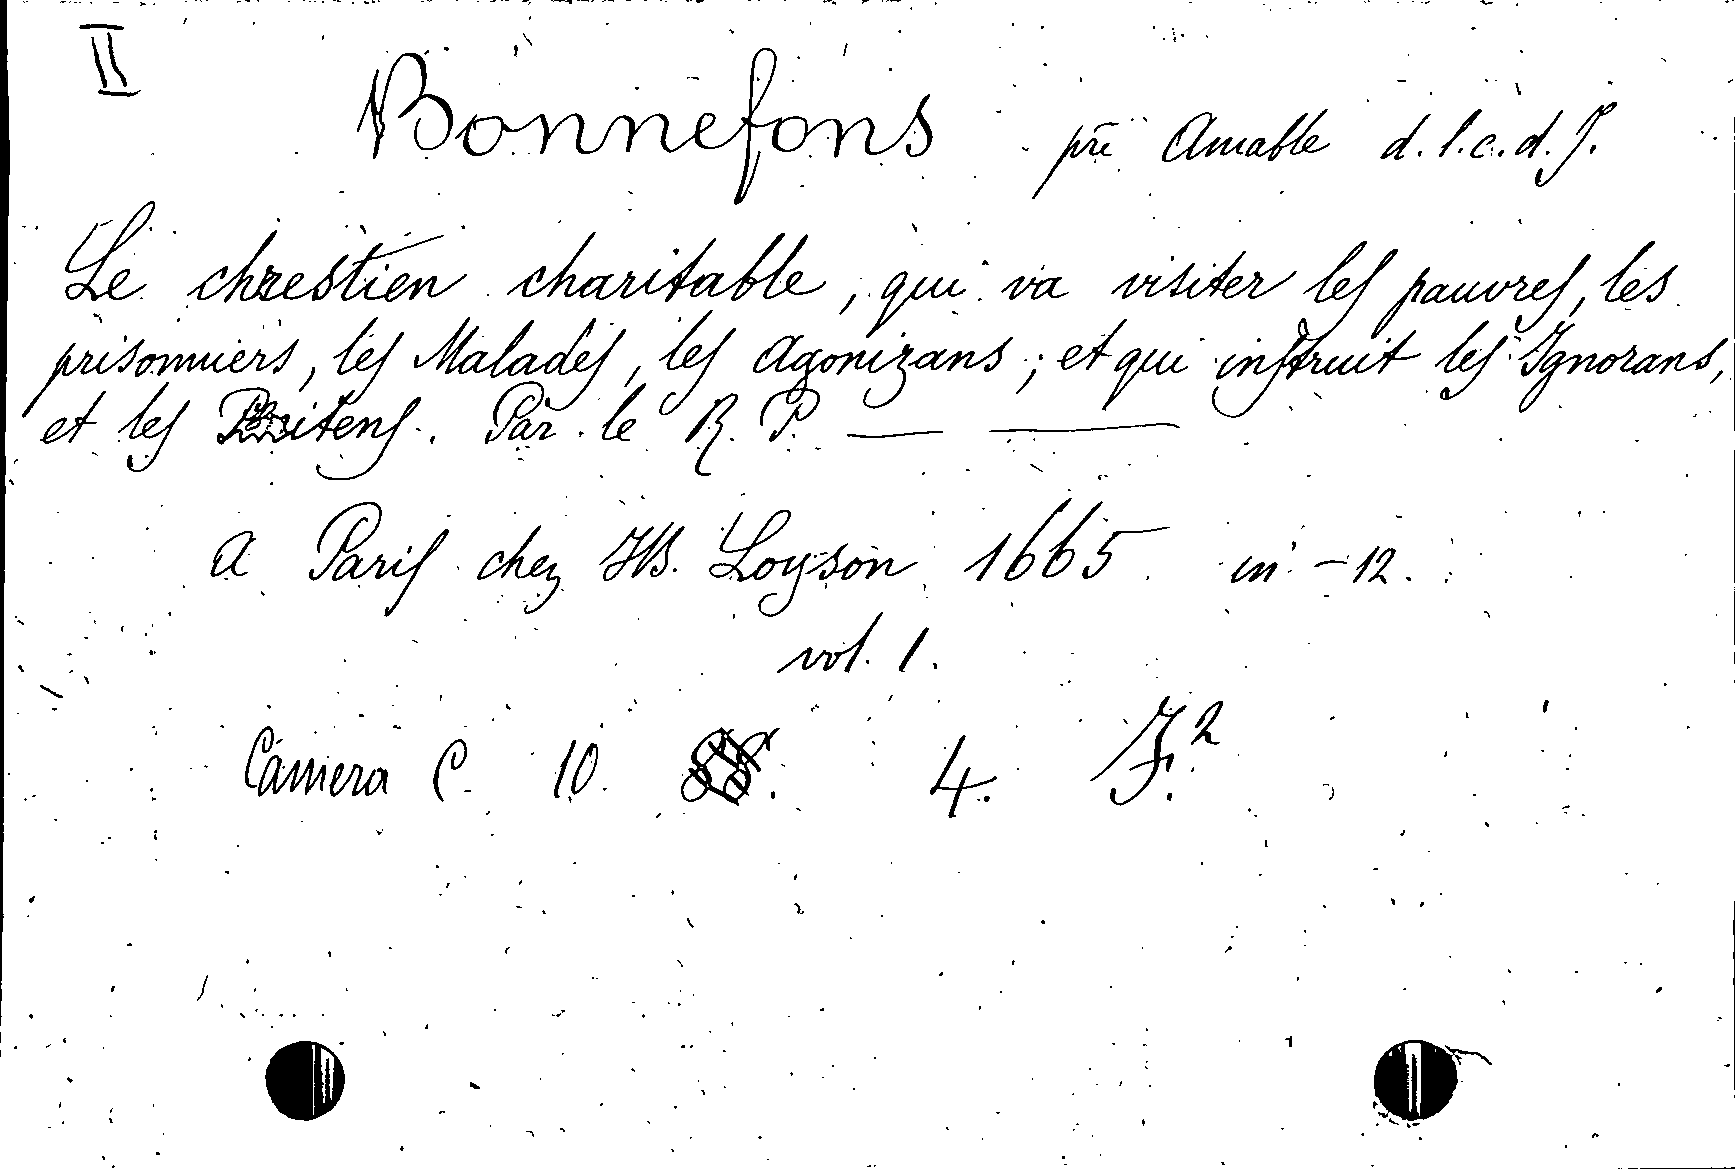 II
Bonnefons pře Amable d. l. c. d. J.
Le chrestien charitable, qui va visiter les pauvres, les
prisonniers, les Malades, les Agonizans; et qui instruit les Ignorans,
et les Penitens. Par le R. P. — —
a Paris chez JB. Loyson 1665 in - 12.
vol. 1.
Camera C. 10. 4. F.²